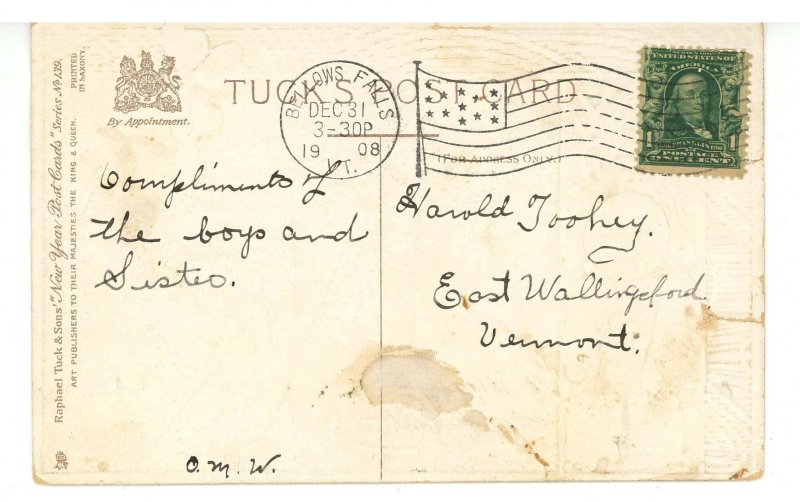 TUCK'S POST CARD
By Appointment.
(FOR ADDRESS ONLY.)
BELLOWS FALLS
DEC 31
3-30P
19 08
VT.
UNITED STATES OF
1
POSTAGE
ONE CENT
Raphael Tuck & Sons' "New Year Post Cards" Series No 139.
ART PUBLISHERS TO THEIR MAJESTIES THE KING & QUEEN.
PRINTED
IN SAXONY.
Compliments of
the boys and
Sister.
O. M. W.
Harold Toohey.
East Wallingford
Vermont.